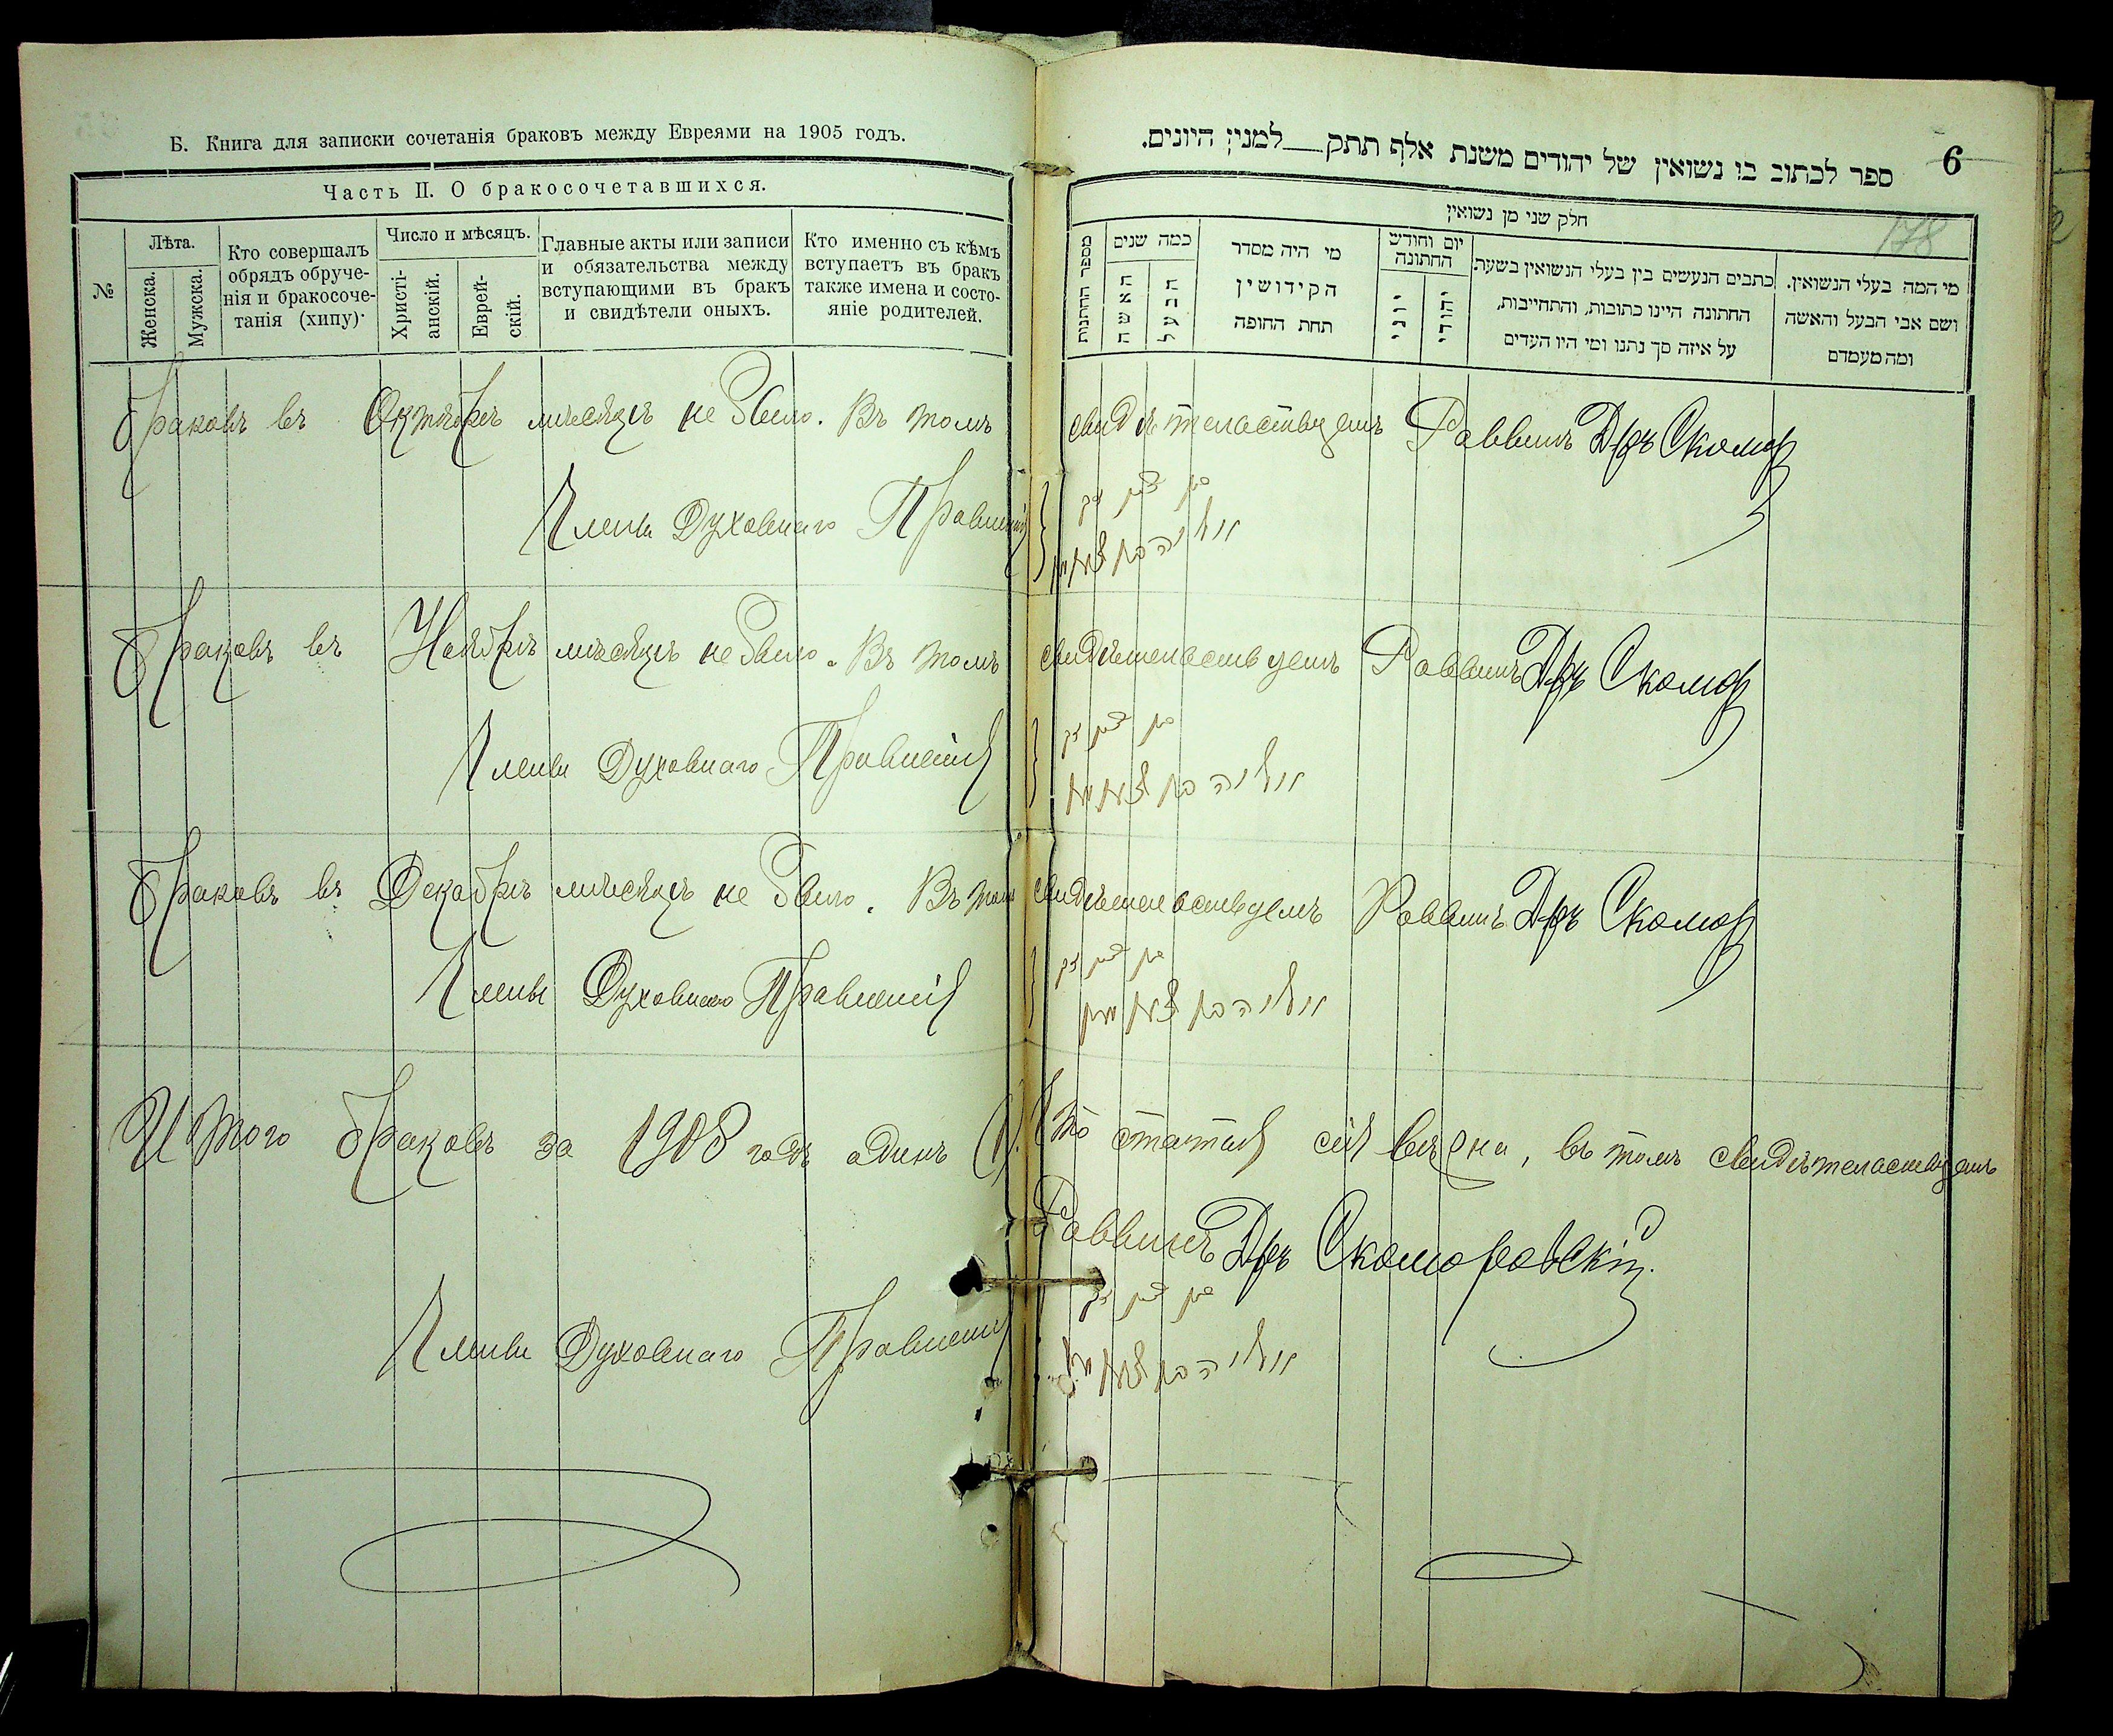 Б. Книга для записки сочетанія браковъ между Евреями на 1905 годъ.
Часть II. О бракосочетавшихся.
№
Лѣта.
Женска.
Мужска.
Кто совершалъ
обрядъ обруче-
нія и бракосоче-
танія (хипу).
Число и мѣсяцъ.
Христі-
анскій.
Еврей-
скій.
Главные акты или записи
и обязательства между
вступающими въ бракъ
и свидѣтели оныхъ.
Кто именно съ кѣмъ
вступаетъ въ бракъ
также имена и состо-
яніе родителей.
ספר לכתוב בו נשואין של יהודים משנת אלף תתק למנין היונים.
6
178
חלק שני מן נשואין
מספר החתונות
כמה שנים
האשה
הבעל
מי היה מסדר
הקידושין
תחת החופה
יום וחודש
החתונה
יוני
יהודי
כתבים הנעשים בין בעלי הנשואין בשעת
החתונה היינו כתובות, והתחייבות,
על איזה סך נתנו ומי היו העדים
מי המה בעלי הנשואין.
ושם אבי הבעל והאשה
ומה מעמדם
Браковъ въ Октябрѣ мѣсяцѣ не было. Въ томъ свидѣтельствуетъ Раввинъ Д-ръ Скомор
Члены Духовнаго Правленія
Браковъ въ Ноябрѣ мѣсяцѣ не было. Въ томъ свидѣтельствуетъ Раввинъ Д-ръ Скомор
Члены Духовнаго Правленія
Браковъ въ Декабрѣ мѣсяцѣ не было. Въ томъ свидѣтельствуетъ Раввинъ Д-ръ Скомор
Члены Духовнаго Правленія
Итого браковъ за 1908 годъ одинъ (1). Что статья сія вѣрна, въ томъ свидѣтельствуетъ
Раввинъ Д-ръ Скоморовскій.
Члены Духовнаго Правленія